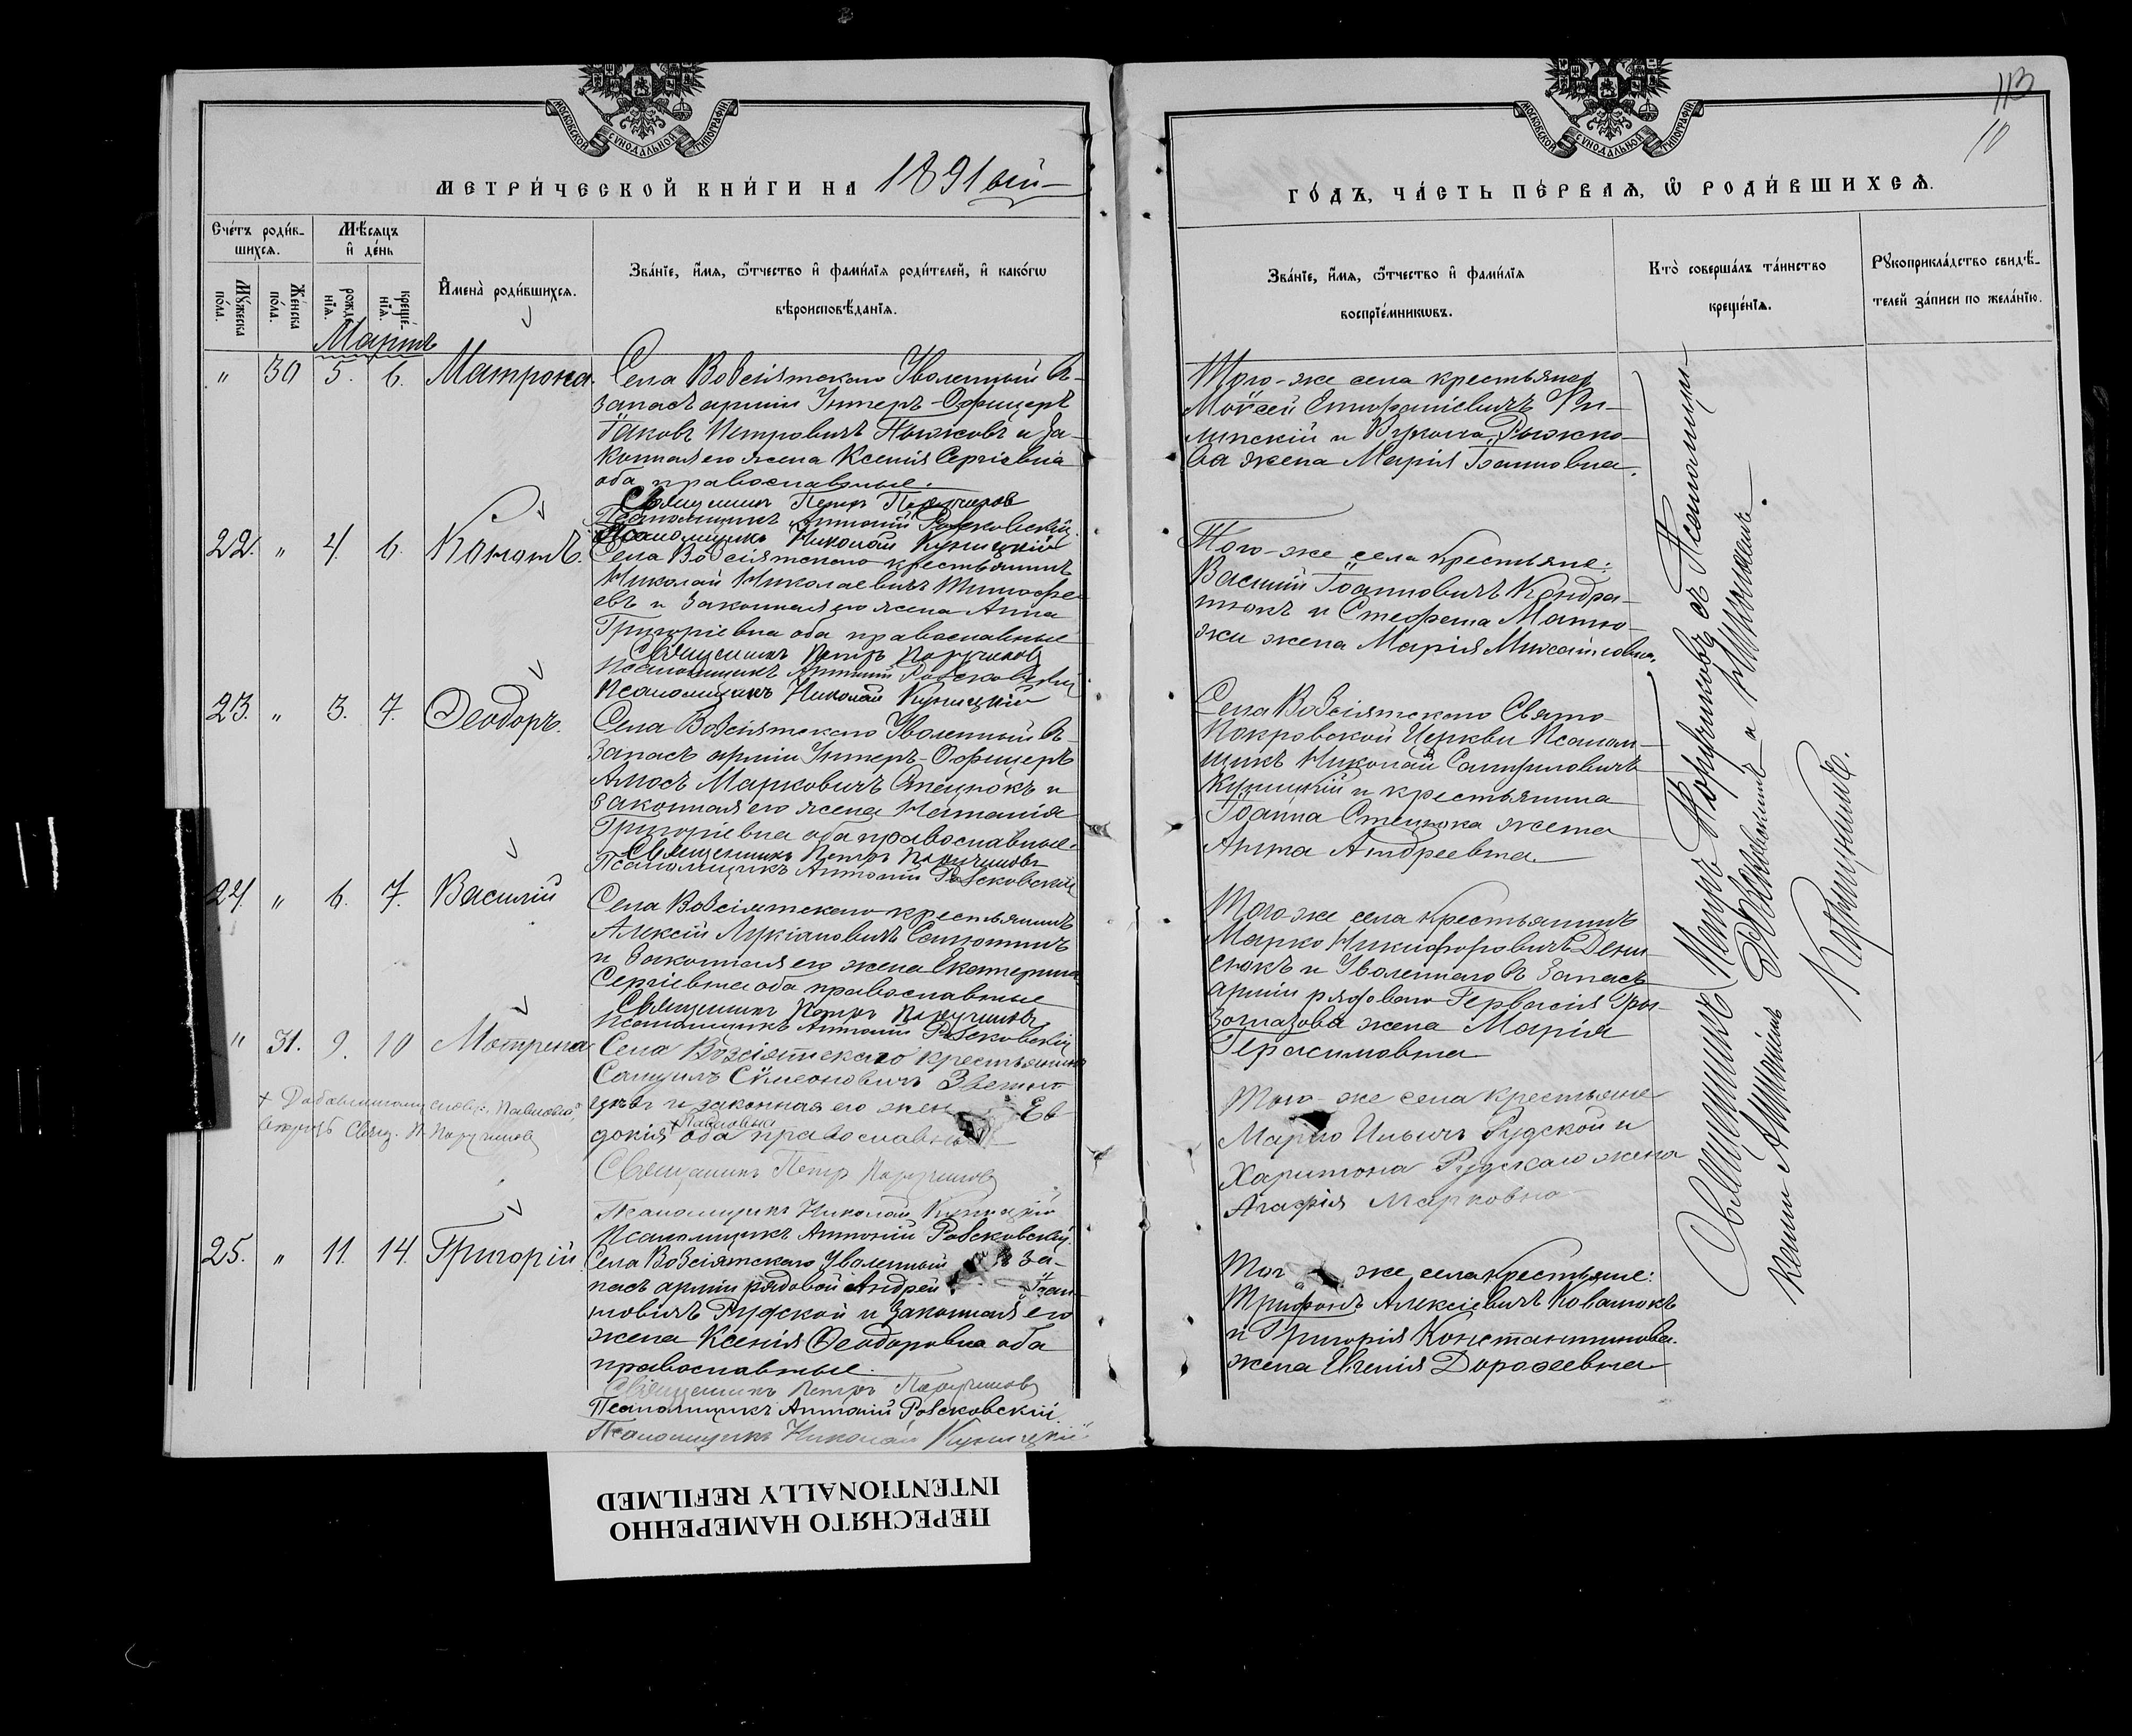 МОСКОВСКОЙ СѴНОДАЛЬНОЙ ТИПОГРАФІИ
МЕТРИ́ЧЕСКОЙ КНИ́ГИ НА 1891 ый
Сче́тъ роди́вшихсѧ.
Мѣ́сѧцъ и҆ де́нь
Мꙋ́жеска по́ла.
Же́нска по́ла.
рожде́нїѧ.
креще́нїѧ.
И҆мена̀ роди́вшихсѧ.
Зва́нїе, и҆́мѧ, ѻ҆́тчество и҆ фами́лїѧ роди́телей, и҆ како́гѡ
вѣроисповѣ́данїѧ.
Мартъ
" 30 5. 6. Матрона.
Села Возсіятскаго Уволенный въ
запасъ арміи Унтеръ-Офицеръ
Іаковъ Петровичъ и за-
конная его жена Ксенія Сергіевна
оба православные.
Священникъ Петръ Поручиковъ
Псаломщикъ Антоній
Псаломщикъ Николай Куницкій
22. " 4. 6. Кононъ.
Села Возсіятскаго крестьянинъ
Николай Николаевичъ Тимофе-
евъ и законная его жена Анна
Григоріевна оба православные
Священникъ Петръ Поручиковъ
Псаломщикъ Антоній
Псаломщикъ Николай Куницкій
23. " 3. 7. Ѳеодоръ.
Села Возсіятскаго Уволенный въ
запасъ арміи Унтеръ-Офицеръ
Амосъ Марковичъ Стецюкъ и
законная его жена Наталія
Григоріевна оба православные.
Священникъ Петръ Поручиковъ
Псаломщикъ Антоній
24. " 6. 7. Василій
Села Возсіятскаго крестьянинъ
Алексій Лукіановичъ
и законная его жена Екатерина
Сергіевна оба православные
Священникъ Петръ Поручиковъ
Псаломщикъ Антоній
" 31. 9. 10 Мотрена
Села Возсіятскаго крестьянинъ
Самуилъ Сѵмеоновичъ
и законная его жен Ев-
докія Павловна оба православны
+ Добавленному слову "Павловна",
вѣрить Свящ. П. Поручиковъ
Священникъ Петръ Поручиковъ
Псаломщикъ Николай Куницкій
Псаломщикъ Антоній
25. " 11. 14. Григорій
Села Возсіятскаго Уволенный въ за-
пасъ арміи рядовой Андрей Іоан-
новичъ Рудской и законная его
жена Ксенія Ѳеодоровна оба
православные.
Священникъ Петръ Поручиковъ
Псаломщикъ Антоній
Псаломщикъ Николай Куницкій
113
10
МОСКОВСКОЙ СѴНОДАЛЬНОЙ ТИПОГРАФІИ
ГО́ДЪ, ЧА́СТЬ ПЕ́РВАѦ, Ѡ҆ РОДИ́ВШИХСѦ.
Зва́нїе, и҆́мѧ, ѻ҆́тчество и҆ фами́лїѧ
воспрїе́мникѡвъ.
Кто̀ соверша́лъ та́инство
креще́нїѧ.
Рꙋкоприкла́дство свидѣ́-
телей за́писи по жела́нїю.
Того-же села крестьяне
Моѵсей Епифаніевичъ Фи-
липскій и Рыжко-
ва жена Марія Іоанновна.
Того-же села крестьяне:
Василій Іоанновичъ Кондра-
тюкъ и Стефана Матю-
жена Марія Михайловна.
Села Возсіятскаго Свято-
Покровской Церкви Псалом-
щикъ Николай Самуиловичъ
Куницкій и крестьянина
Іоанна Стецюка жена
Анна Андреевна
Того же села крестьянинъ
Марко Никифоровичъ Дени-
сюкъ и Уволеннаго въ запасъ
арміи рядоваго Гервасія
жена Марія
Герасимовна
Того-же села крестьяне
Марко Ильичъ Рудской и
Харитона Рудскаго жена
Агафія Марковна
Того же села крестьяне:
Трифонъ Алексіевичъ Ковалюкъ
и Григорія Константинова
жена Евгенія Дорофеевна
Священникъ Петръ Поручиковъ съ Псаломщи-
ками Антоніемъ и Николаемъ
Куницкимъ.
ПЕРЕСНЯТО НАМЕРЕННО
INTENTIONALLY REFILMED